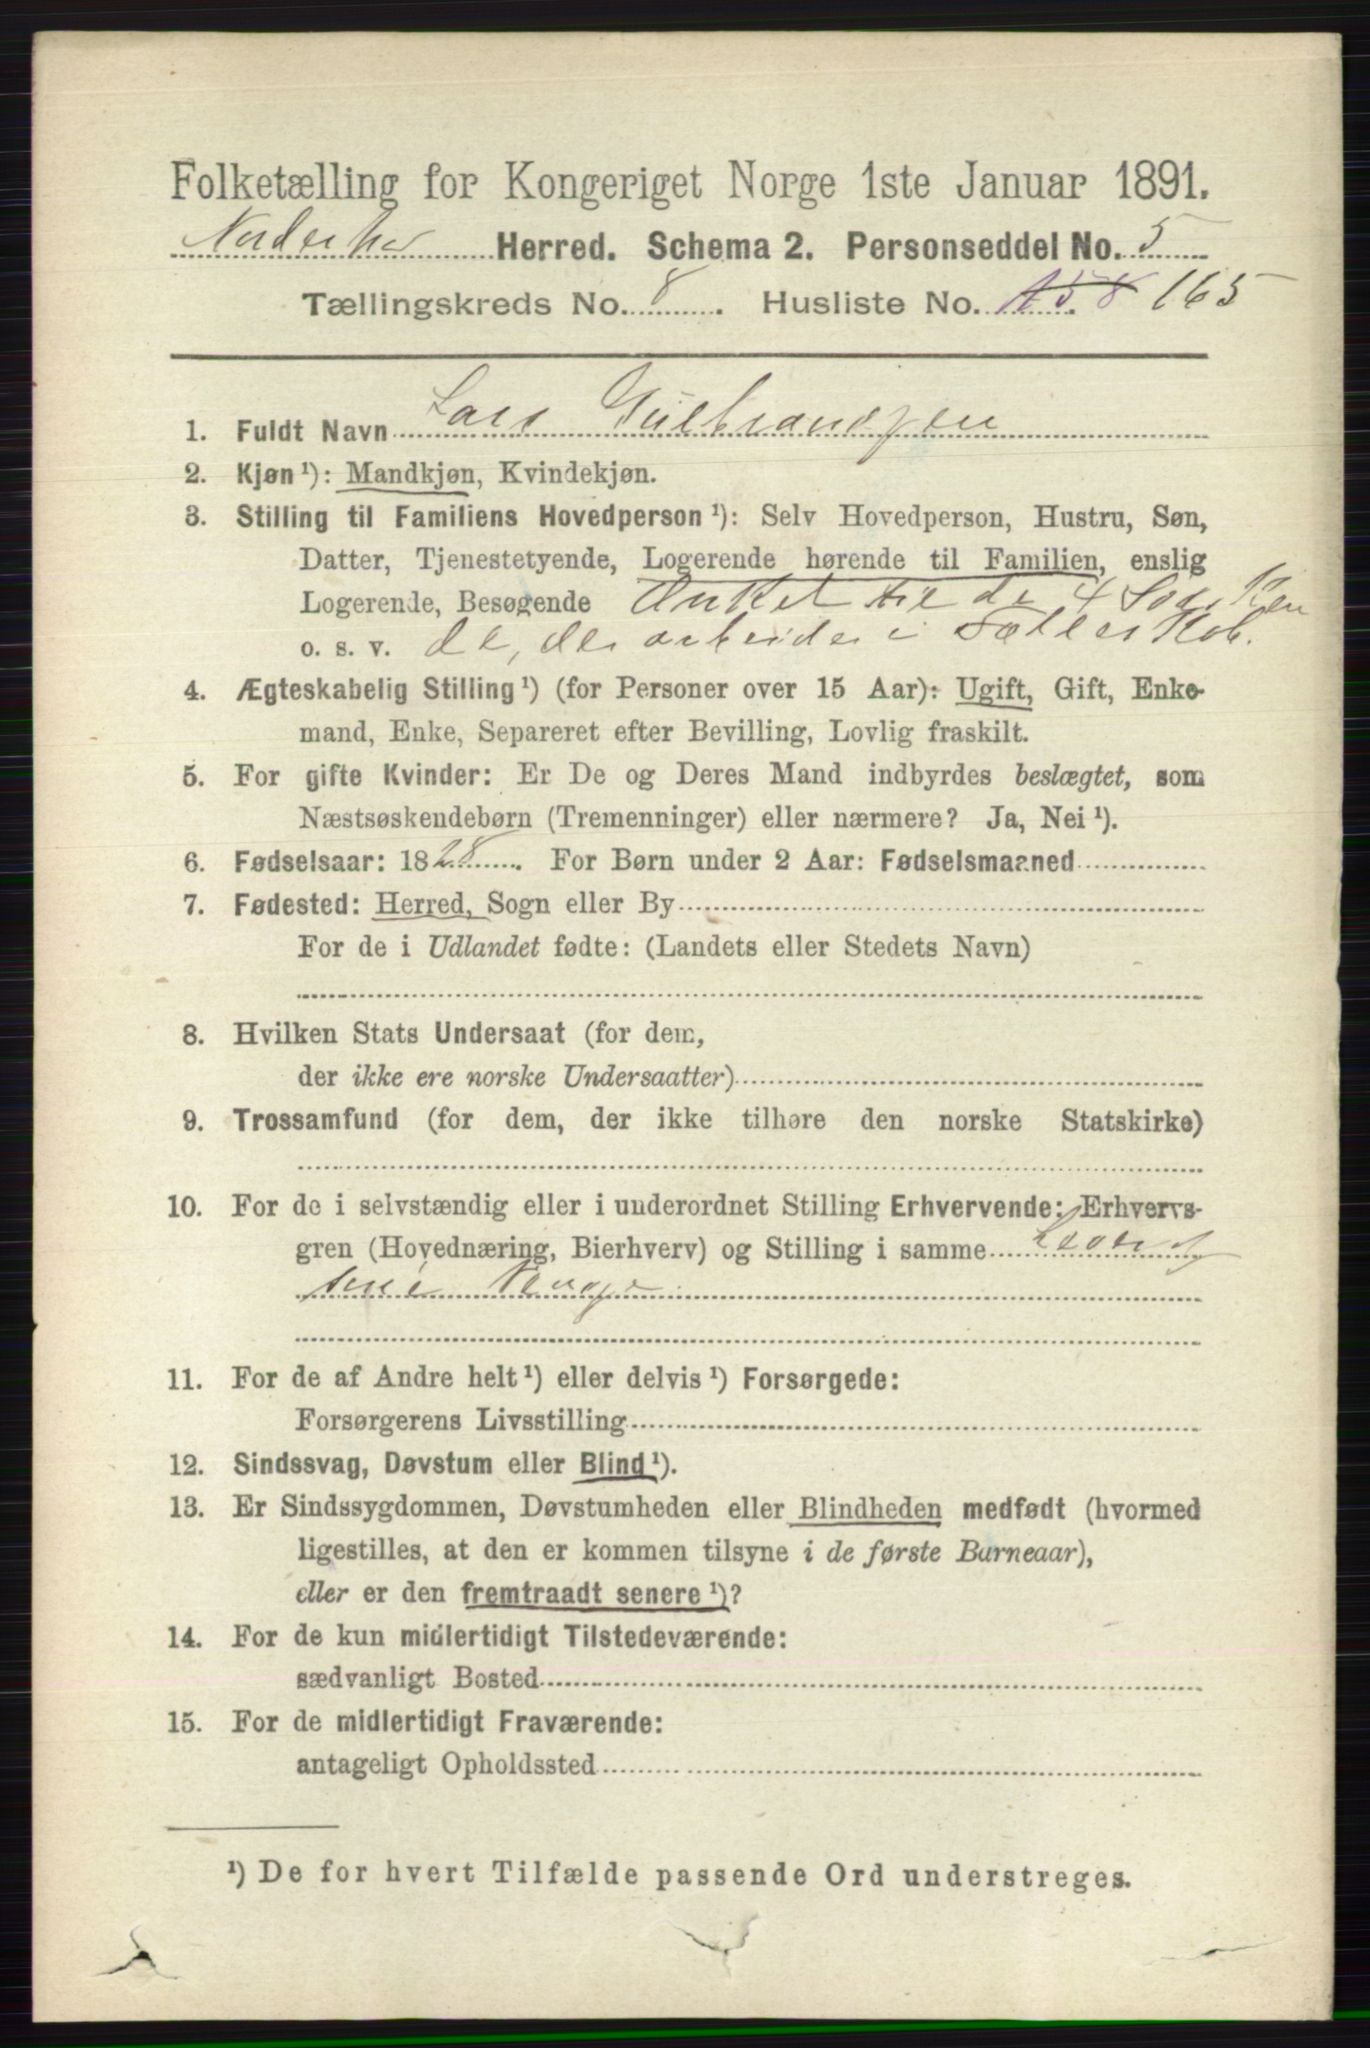 Folketælling for Kongeriget Norge 1ste Januar 1891.
Norderhov Herred. Schema 2. Personseddel No. 5
Tællingskreds No. 8. Husliste No. 158 165
1. Fuldt Navn Lars Gulbrandsen
2. Kjøn ¹): Mandkjøn, Kvindekjøn.
3. Stilling til Familiens Hovedperson ¹): Selv Hovedperson, Hustru, Søn,
Datter, Tjenestetyende, Logerende hørende til Familien, enslig
Logerende, Besøgende Onkel til de 4 Søsken
o. s. v. de, der arbeider i Fællesskab.
4. Ægteskabelig Stilling ¹) (for Personer over 15 Aar): Ugift, Gift, Enke-
mand, Enke, Separeret efter Bevilling, Lovlig fraskilt.
5. For gifte Kvinder: Er De og Deres Mand indbyrdes beslægtet, som
Næstsøskendebørn (Tremenninger) eller nærmere? Ja, Nei ¹).
6. Fødselsaar: 1828. For Børn under 2 Aar: Fødselsmaaned
7. Fødested: Herred, Sogn eller By
For de i Udlandet fødte: (Landets eller Stedets Navn)
8. Hvilken Stats Undersaat (for dem,
der ikke ere norske Undersaatter)
9. Trossamfund (for dem, der ikke tilhøre den norske Statskirke)
10. For de i selvstændig eller i underordnet Stilling Erhvervende: Erhvervs-
gren (Hovednæring, Bierhverv) og Stilling i samme Lever af
sine Penge
11. For de af Andre helt ¹) eller delvis ¹) Forsørgede:
Forsørgerens Livsstilling
12. Sindssvag, Døvstum eller Blind ¹).
13. Er Sindssygdommen, Døvstumheden eller Blindheden medfødt (hvormed
ligestilles, at den er kommen tilsyne i de første Barneaar),
eller er den fremtraadt senere ¹)?
14. For de kun midlertidigt Tilstedeværende:
sædvanligt Bosted
15. For de midlertidigt Fraværende:
antageligt Opholdssted
¹) De for hvert Tilfælde passende Ord understreges.